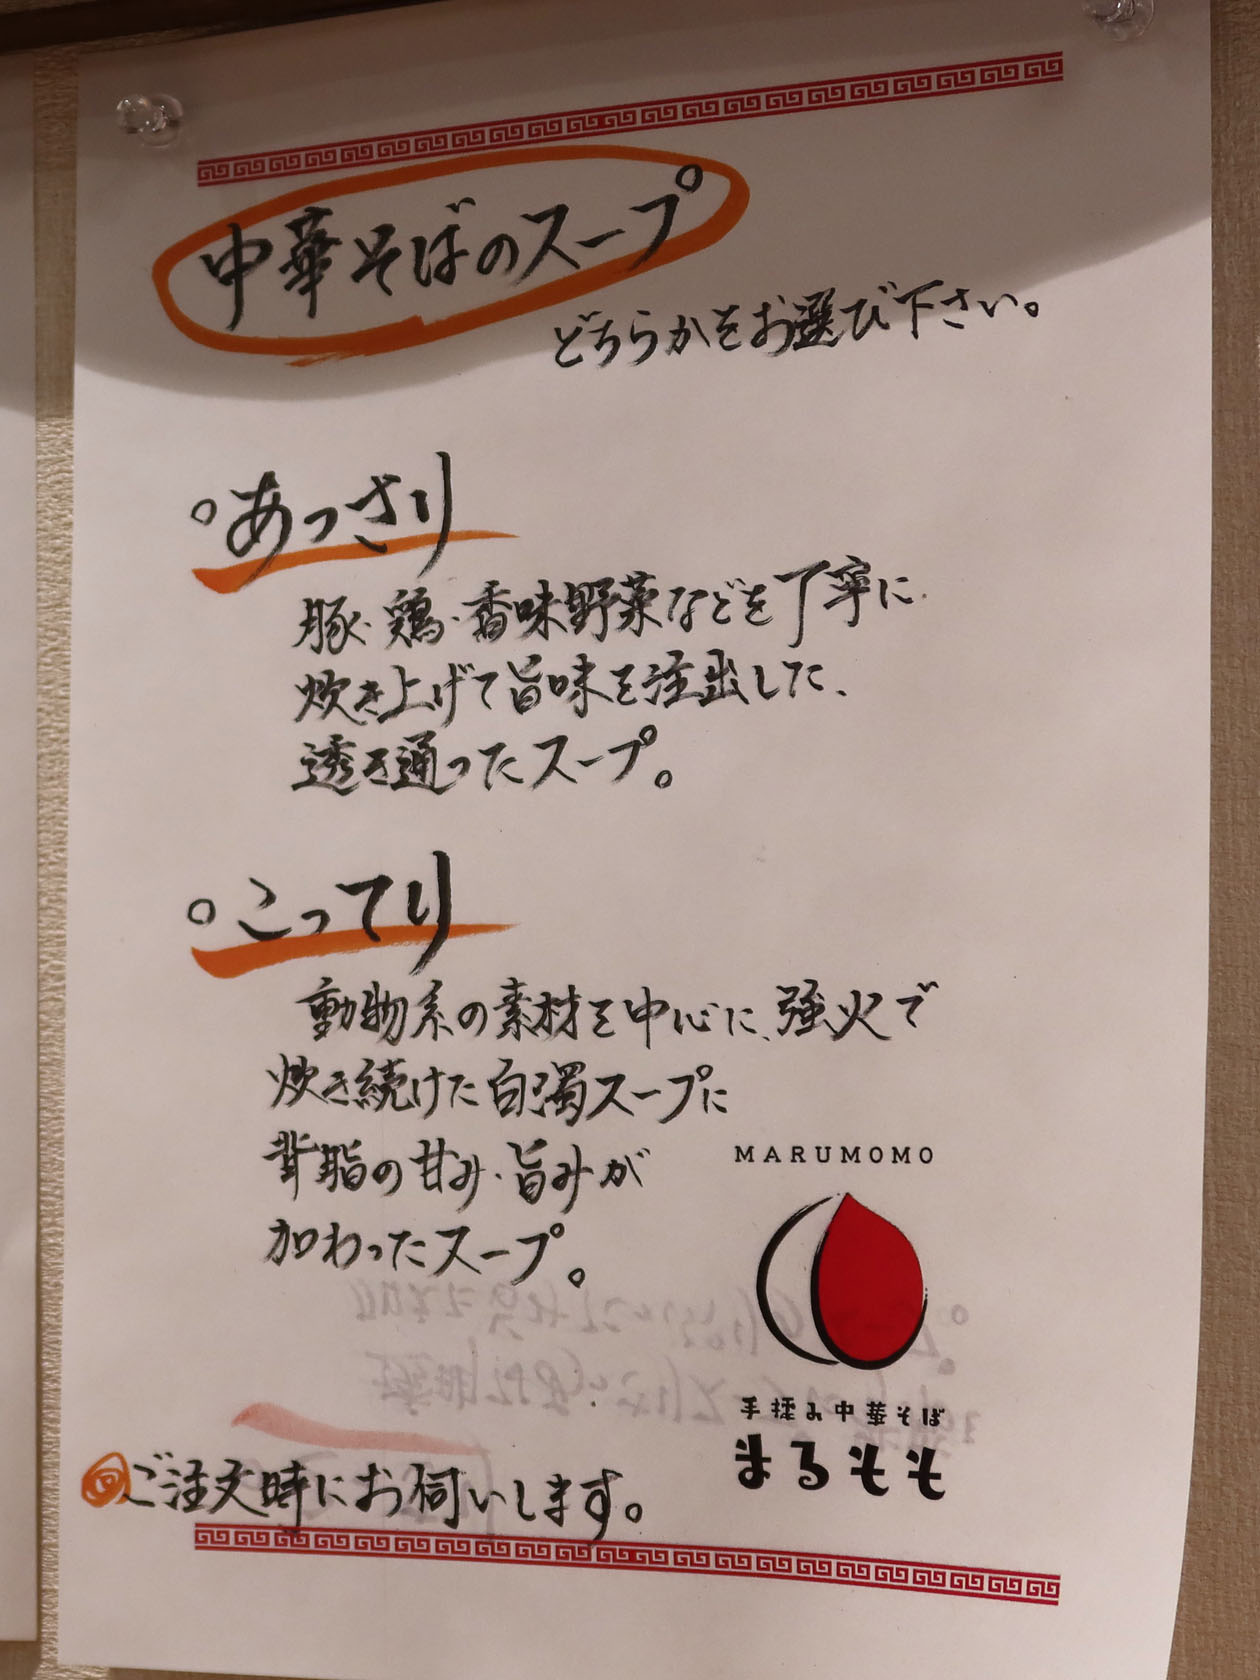 中華そばのスープ
どちらかをお選び下さい。
。あっさり
豚・鶏・香味野菜などを丁寧に
炊き上げて旨味を注出した、
透き通ったスープ。
。こってり
動物系の素材を中心に、強火で
炊き続けた白濁スープに
背脂の甘み・旨みが
加わったスープ。
MARUMOMO
手揉み中華そば
まるもも
ご注文時にお伺いします。